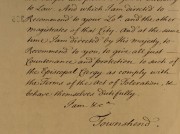 to Law. And which I am directed to
Recommend to your Lop.s and the other
Magistrates of that City. And at the same
time, I am directed by his Majesty, to
Recommend to you, to give all just
Countenance and protection to such of
the Episcopal Clergy as comply with
the Terms of the Act of Toleration, &
behave themselves dutifully
I am &c.a
Townshend